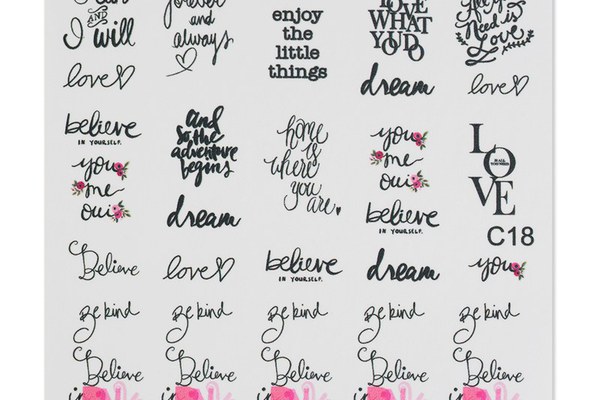 I can
AND
I will
forever
and
always
enjoy
the
little
things
LOVE
WHAT
YOU DO
All you
Need is
Love
love
dream
love
believe
IN YOURSELF.
and
so the
adventure
begins
home
is
where
you
are
you
me
oui
LOVE
you
me
oui
dream
believe
IN YOURSELF.
C18
Believe
love
believe
IN YOURSELF.
dream
you
Be kind
Be kind
Be kind
Be kind
Be kind
Believe
Believe
Believe
Believe
Believe
in
in
in
in
in